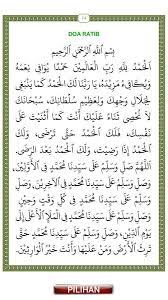 14
DOA RATIB
بِسْمِ اللهِ الرَّحْمَنِ الرَّحِيْمِ
اَلْحَمْدُ لِلّٰهِ رَبِّ الْعَالَمِيْنَ حَمْدًا يُوَافِى نِعَمَهُ
وَيُكَافِىءُ مَزِيْدَهُ، يَا رَبَّنَا لَكَ الْحَمْدُ كَمَا يَنْبَغِى
لِجَلَالِ وَجْهِكَ وَلِعَظِيْمِ سُلْطَانِكَ، سُبْحَانَكَ
لَا نُحْصِى ثَنَاءً عَلَيْكَ أَنْتَ كَمَا أَثْنَيْتَ عَلَى
نَفْسِكَ، فَلَكَ الْحَمْدُ حَتَّى تَرْضَى، وَلَكَ
الْحَمْدُ إِذَا رَضِيْتَ، وَلَكَ الْحَمْدُ بَعْدَ الرِّضَى.
اَللّٰهُمَّ صَلِّ وَسَلِّمْ عَلَى سَيِّدِنَا مُحَمَّدٍ فِى الْأَوَّلِيْنَ،
وَصَلِّ وَسَلِّمْ عَلَى سَيِّدِنَا مُحَمَّدٍ فِى الْآخِرِيْنَ، وَصَلِّ
وَسَلِّمْ عَلَى سَيِّدِنَا مُحَمَّدٍ فِى كُلِّ وَقْتٍ وَحِيْنٍ،
وَصَلِّ وَسَلِّمْ عَلَى سَيِّدِنَا مُحَمَّدٍ فِى الْمَلَإِ الْأَعْلَى
إِلَى يَوْمِ الدِّيْنِ، وَصَلِّ وَسَلِّمْ عَلَى سَيِّدِنَا مُحَمَّدٍ حَتَّى
تَرِثَ الْأَرْضَ وَمَنْ عَلَيْهَا وَأَنْتَ خَيْرُ الْوَارِثِيْنَ.
PILIHAN